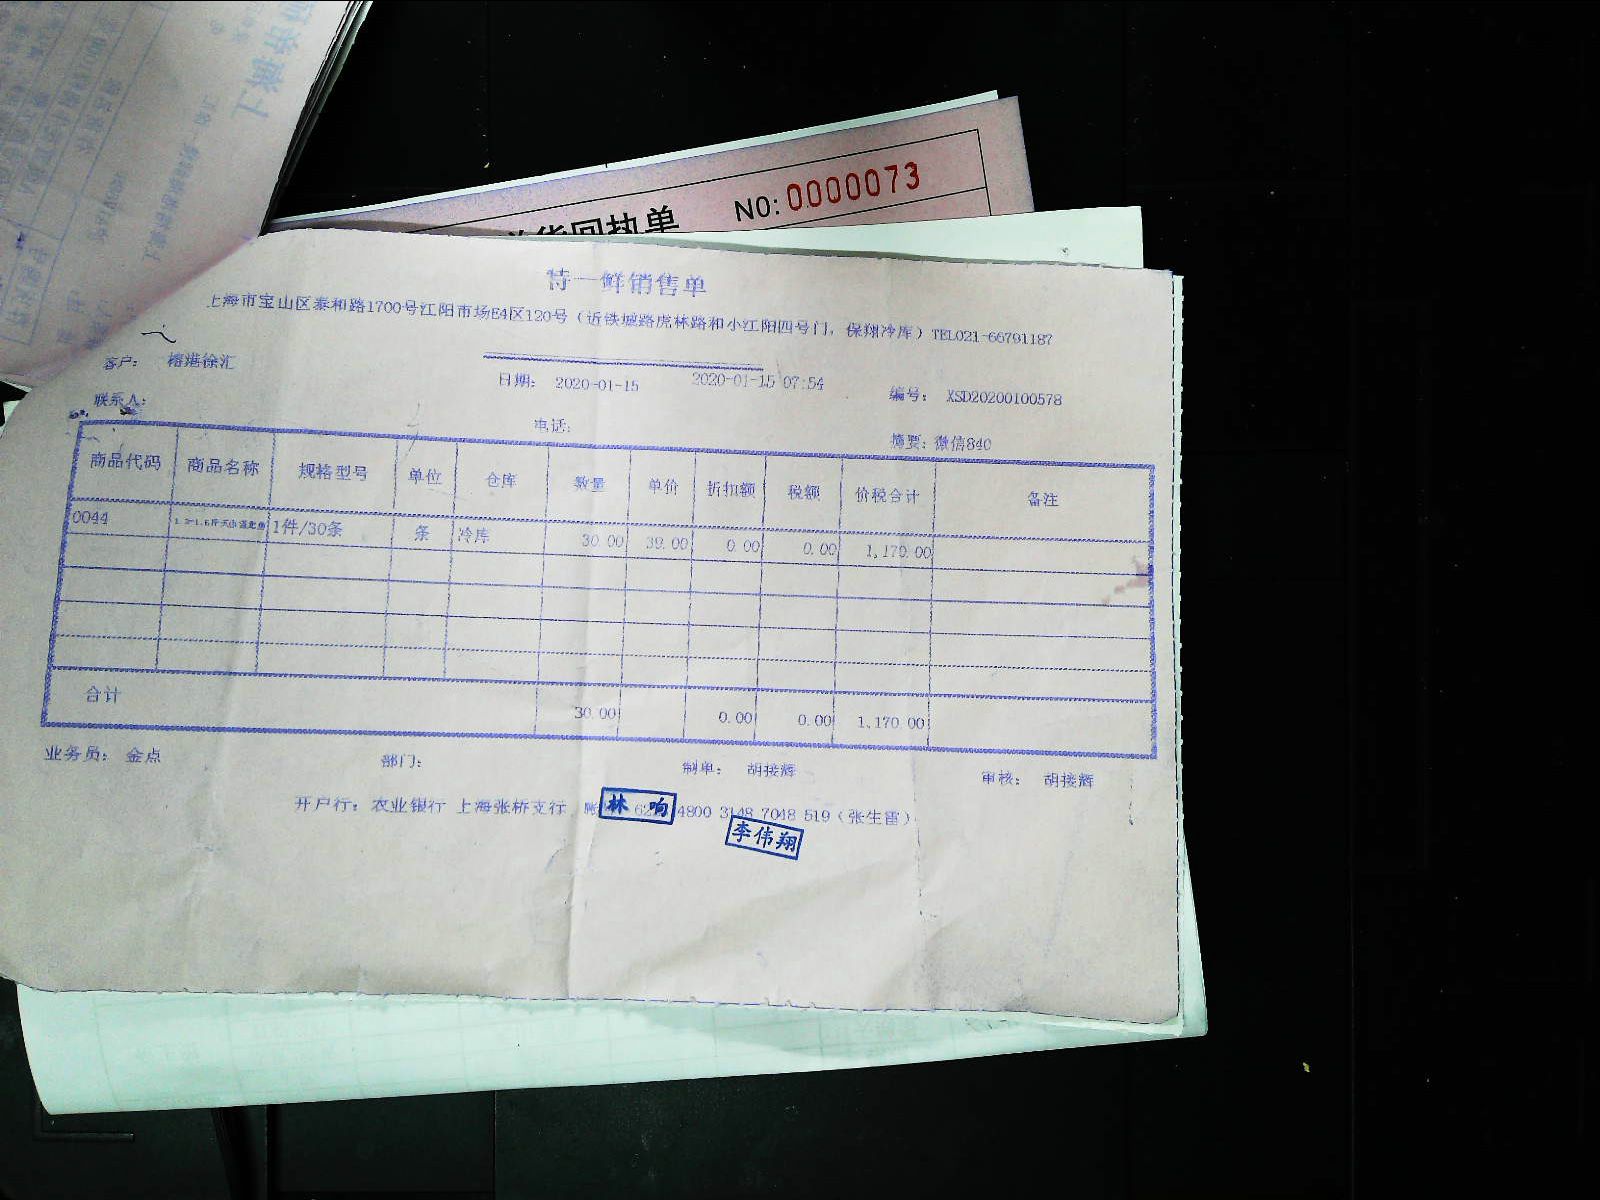 回执单 NO:0000073
特一鲜销售单
上海市宝山区泰和路1700号江阳市场E4区120号（近铁城路虎林路和小江阳四号门，保翔冷库）TEL021-66791187
客户： 榕港徐汇 日期： 2020-01-15 2020-01-15 07:54 编号： XSD20200100578
联系人： 电话： 摘要：微信840
商品代码 商品名称 规格型号 单位 仓库 数量 单价 折扣额 税额 价税合计 备注
0044 1件/30条 条 冷库 30.00 39.00 0.00 0.00 1,170.00
合计 30.00 0.00 0.00 1,170.00
业务员： 金点 部门： 制单： 胡接辉 审核： 胡接辉
开户行：农业银行 上海张桥支行 4800 3148 7048 519（张生雷）
林 响
李伟翔